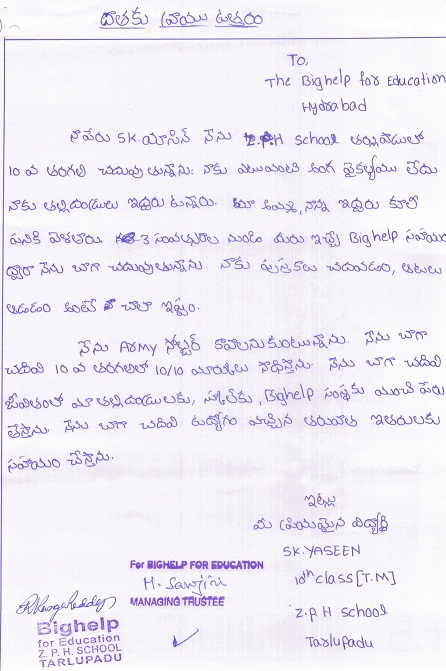 దాతకు వ్రాయు ఉత్తరం
To,
The Bighelp for Education
Hydrabad
నాపేరు SK.యాసిన్ నేను Z.P.H School తర్లుపాడులో
10 వ తరగతి చదువుతున్నాను. నాకు ఎటువంటి అంగ వైకల్యము లేదు.
నాకు తల్లిదండ్రులు ఇద్దరు ఉన్నారు. మా అమ్మ, నాన్న ఇద్దరు కూలి
పనికి వెళతారు. 3 సంవత్సరాల నుండి మీరు ఇచ్చే Bighelp సహాయం
ద్వారా నేను బాగా చదువుతున్నాను. నాకు పుస్తకాలు చదవడం, ఆటలు
ఆడడం అంటే చాలా ఇష్టం.
నేను Army సోల్జర్ కావాలనుకుంటున్నాను. నేను బాగా
చదివి 10 వ తరగతిలో 10/10 మార్కులు సాధిస్తాను. నేను బాగా చదివి
జీవితంలో మా తల్లిదండ్రులకు, స్కూల్‌కు, Bighelp సంస్థకు మంచి పేరు
తెస్తాను. నేను బాగా చదివి ఉద్యోగం వచ్చిన తరువాత ఇతరులకు
సహాయం చేస్తాను.
ఇట్లు
మీ ప్రియమైన విద్యార్థి
SK.YASEEN
10th class [T.M]
Z.P.H School
Tarlupadu
For BIGHELP FOR EDUCATION
MANAGING TRUSTEE
Bighelp
for Education
Z. P. H. SCHOOL
TARLUPADU